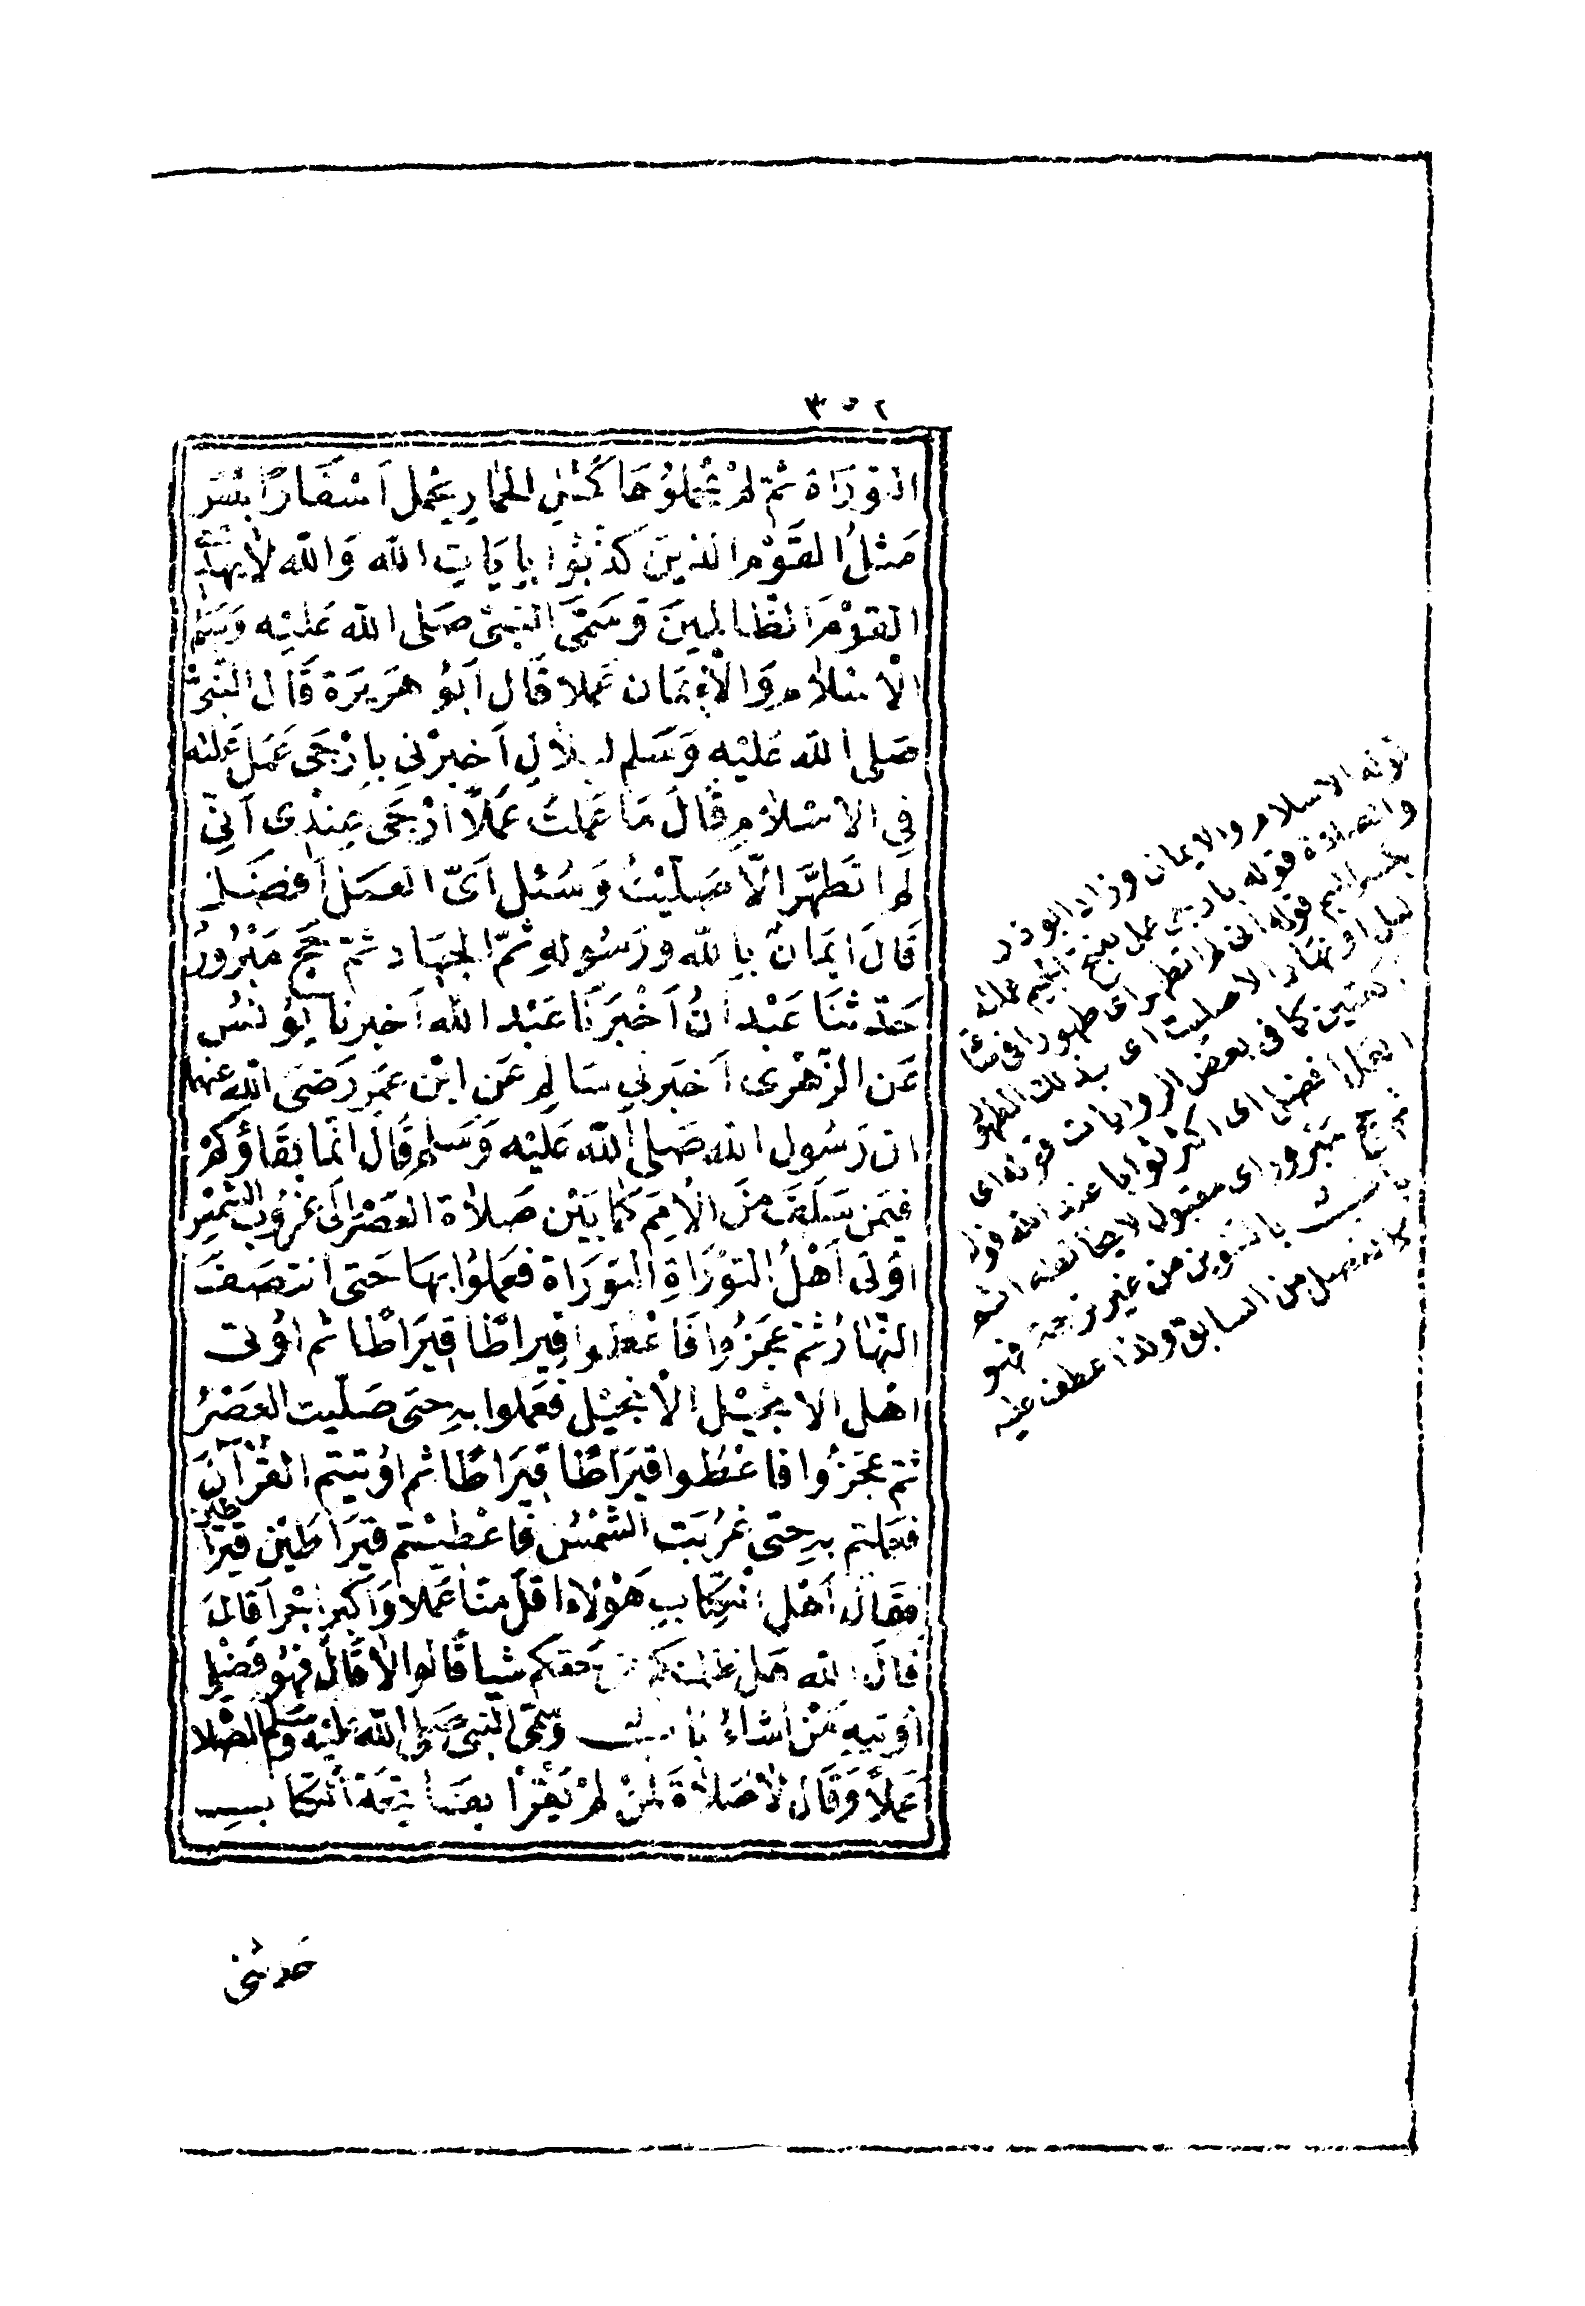 ٣٥٢
التَّوْرَاةَ ثُمَّ لَمْ يَحْمِلُوهَا كَمَثَلِ الحِمَارِ يَحْمِلُ اَسْفَارًا بِئْسَ
مَثَلُ القَوْمِ الَّذِينَ كَذَّبُوا بِايَاتِ اللّٰه وَاللّٰه لاَ يَهْدِي
القَوْمَ الظَّالِمِينَ وَسَمَّى النَّبِىّ صَلى اللّٰه عَلَيْه وَسَلم
الْاِسْلاَمِ وَالْاِيمَان عَمَلا قَال اَبُو هُرَيرَة قَال النَّبِىّ
صَلى اللّٰه عَلَيْهِ وَسَلم لِبِلاَلٍ اَخبِرْنِي بِاَرْجَى عَمَلٍ عَمِلته
فِي الاِسْلاَمِ قَالَ مَا عَمِلْتُ عَمَلاً اَرْجَى عِنْدِى اَنِّي
لم اتَطَهَّر اِلاّ صَلّيْتُ وَسُئل اَىّ العَمَل اَفضَل
قَالَ ايمَانٌ بِاللّه وَرَسُولِهِ ثمّ الجهَاد ثمّ حَجّ مَبْرُورٌ
حَدّثَنَا عَبْدَانُ اَخْبَرَنَا عَبْد اللّٰه اَخبرنا يُونُسُ
عَن الزّهْرِى اَخبَرني سَالِم عَن ابْن عمَر رَضىَ اللّٰه عنهما
ان رَسُول اللّٰه صَلى اللّٰه عَلَيْه وَسَلم قَال انّما بَقَاؤكُمْ
فِيمَن سَلَفَ مِنَ الاُمَمِ كَمَا بَيْن صَلاَة العَصْر اِلَى غرُوب الشّمْس
اوُتى اَهْلُ التّوْرَاةِ التوْرَاة فعَمِلوُا بهَا حَتى انتصَفَ
النَّهَارُ ثمّ عَجَزُوا فَاعْطوا قِيراطًا قِيرَاطًا ثم اوُتى
اهْل الانجِيْل الاِنْجِيْل فعَملوا بهِ حتى صَلّيت العَصْرُ
ثمّ عَجَزُوا فاعْطُوا قيرَاطًا قِيَرَاطًا ثم اوُتيتم القُرْآنَ
فعَملتم بهِ حتى غرُبَت الشّمْسُ فَاعْطيْتم قيرَاطَيْن قيرَاطين
فقَال اَهْل الكِتَابِ هَؤلاَء اقلّ منّا عَمَلا وَاَكثر اجْرا قَالَ
قَالَ اللّٰه هَل ظلمتكم من حَقكم شيا قَالوا لاَ قَالَ فهُو فَضْلِي
اوُتيهِ مَنْ اَشاءُ بَابٌ وَسَمّى النبىّ صَلى اللّٰه عَلَيْه وَسَلم الصّلاة
عَمَلاً وَقَال لاَ صَلاَةَ لِمَنْ لَمْ يَقْرَأ بفَاتِحَة الكتاب
حَدثني
قوله الاسلام والايمان وزاد ابوذر
والصلاة قوله بارجى عمل بفتح الميم عملته
بكسر الميم قوله انى لم اتطهر اى طهورا فى ساعة
ليل او نهار الا صليت اى بذلك الطهور
ركعتين كما فى بعض الروايات قوله اى
العمل افضل اى اكثر ثوابا عند الله قوله
ثم حج مبرور اى مقبول لا يخالطه اثم
باب بالتنوين من غير ترجمة فهو
كالفصل من السابق ولذا عطف عليه